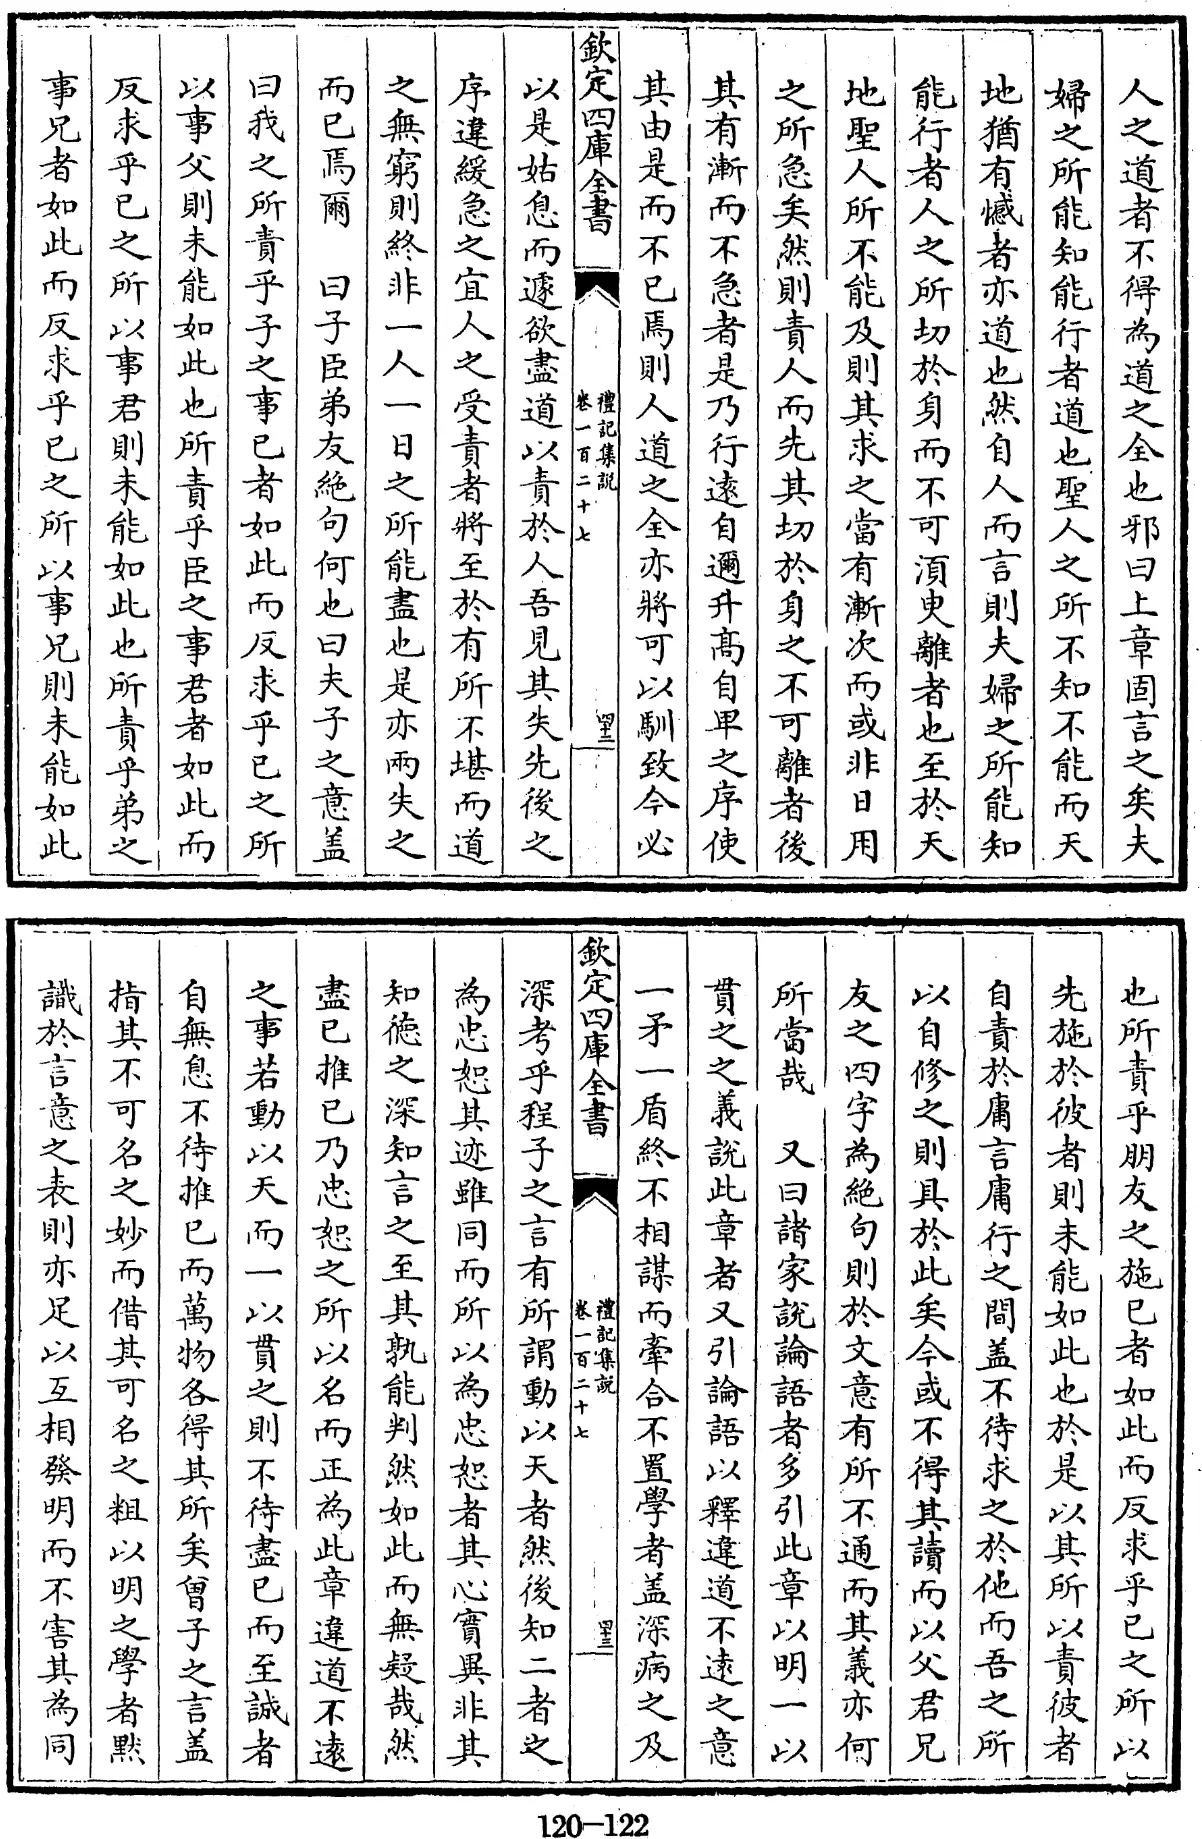 人之道者不得為道之全也邪曰上章固言之矣夫
婦之所能知能行者道也聖人之所不知不能而天
地猶有憾者亦道也然自人而言則夫婦之所能知
能行者人之所切於身而不可湏臾離者也至於天
地聖人所不能及則其求之當有漸次而或非日用
之所急矣然則責人而先其切於身之不可離者後
其有漸而不急者是乃行逺自邇升髙自卑之序使
其由是而不已焉則人道之全亦將可以馴致今必
欽定四庫全書
禮記集說
卷一百二十七
四十三
以是姑息而遽欲盡道以責於人吾見其失先後之
序違緩急之宜人之受責者將至於有所不堪而道
之無窮則終非一人一日之所能盡也是亦兩失之
而已焉爾 曰子臣弟友絶句何也曰夫子之意盖
曰我之所責乎子之事已者如此而反求乎已之所
以事父則未能如此也所責乎臣之事君者如此而
反求乎已之所以事君則未能如此也所責乎弟之
事兄者如此而反求乎已之所以事兄則未能如此
也所責乎朋友之施已者如此而反求乎已之所以
先施於彼者則未能如此也於是以其所以責彼者
自責於庸言庸行之間盖不待求之於他而吾之所
以自修之則具於此矣今或不得其讀而以父君兄
友之四字為絶句則於文意有所不通而其義亦何
所當哉 又曰諸家說論語者多引此章以明一以
貫之之義說此章者又引論語以釋違道不逺之意
一矛一盾終不相謀而牽合不置學者盖深病之及
欽定四庫全書
禮記集說
卷一百二十七
四十三
深考乎程子之言有所謂動以天者然後知二者之
為忠恕其迹雖同而所以為忠恕者其心實異非其
知德之深知言之至其孰能判然如此而無疑哉然
盡已推已乃忠恕之所以名而正為此章違道不逺
之事若動以天而一以貫之則不待盡已而至誠者
自無息不待推已而萬物各得其所矣曾子之言盖
指其不可名之妙而借其可名之粗以明之學者黙
識於言意之表則亦足以互相發明而不害其為同
120-122